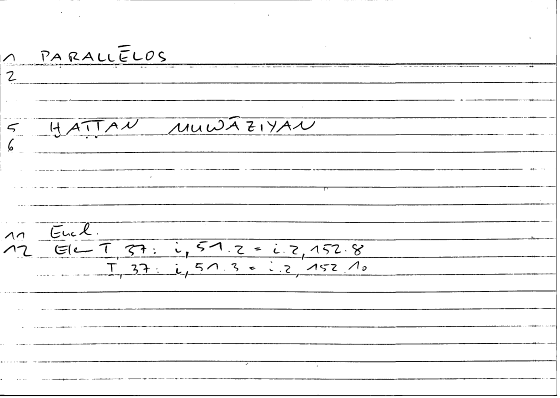 1 PARALLĒLOS
2
5 ḪAṬṬAN MUWĀZIYAN
6
11 Eucl.
12 El I, 37: i, 51.2 = i.2, 152.8
I, 37: i, 51.3 = i.2, 152.10